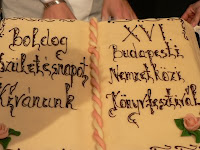 Boldog
születésnapot
Kívánunk
XVI.
Budapesti
Nemzetközi
Könyvfesztivál